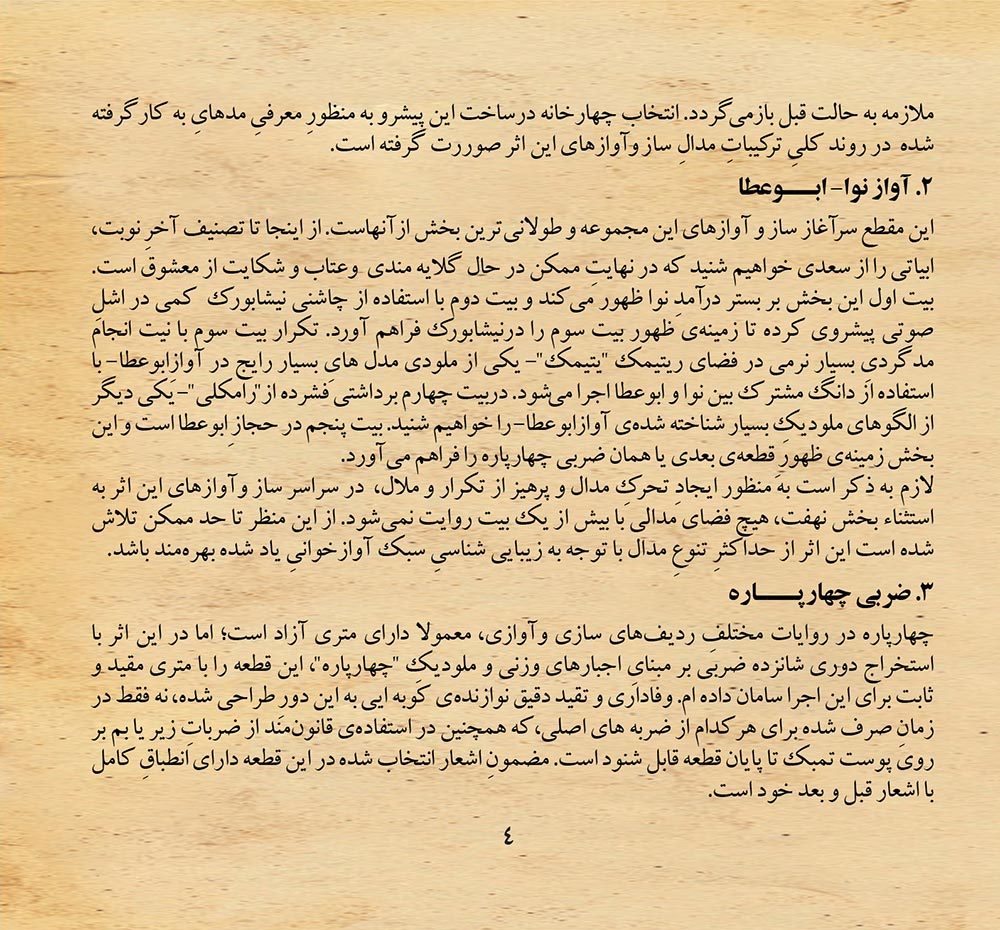 ملازمه به حالت قبل بازمی‌گردد. انتخاب چهارخانه درساخت این پیشرو به منظورِ معرفیِ مدهایِ به کار گرفته
شده در روند کلیِ ترکیباتِ مدالِ ساز وآوازهای این اثر صوررت گرفته است.
۲. آواز نوا- ابـــوعطا
این مقطع سرآغاز ساز و آوازهای این مجموعه و طولانی‌ترین بخش ازآنهاست. از اینجا تا تصنیف آخرِ نوبت،
ابیاتی را از سعدی خواهیم شنید که در نهایتِ ممکن در حال گلایه مندی وعتاب و شکایت از معشوق است.
بیت اول این بخش بر بستر درآمدِ نوا ظهور می‌کند و بیت دوم با استفاده از چاشنی نیشابورک کمی در اشل
صوتی پیشروی کرده تا زمینه‌ی ظهور بیت سوم را درنیشابورک فراهم آورد. تکرار بیت سوم با نیت انجام
مدگردی بسیار نرمی در فضای ریتمیک "یتیمک"- یکی از ملودی مدل های بسیار رایج در آوازِابوعطا- با
استفاده از دانگ مشترک بین نوا و ابوعطا اجرا می‌شود. دربیت چهارم برداشتی فشرده از"رامکلی"-یکی دیگر
از الگوهای ملودیک بسیار شناخته شده‌ی آوازابوعطا-را خواهیم شنید. بیت پنجم در حجازِ ابوعطا است و این
بخش زمینه‌ی ظهورِ قطعه‌ی بعدی یا همان ضربی چهارپاره را فراهم می‌آورد.
لازم به ذکر است به منظور ایجادِ تحرکِ مدال و پرهیز از تکرار و ملال، در سراسر ساز وآوازهای این اثر به
استثناء بخش نهفت، هیچ فضای مدالی با بیش از یک بیت روایت نمی‌شود. از این منظر تا حد ممکن تلاش
شده است این اثر از حداکثرِ تنوعِ مدال با توجه به زیبایی شناسیِ سبک آوازخوانیِ یاد شده بهره‌مند باشد.
۳. ضربی چهارپـــاره
چهارپاره در روایات مختلف ردیف‌های سازی وآوازی، معمولا دارای متری آزاد است؛ اما در این اثر با
استخراج دوری شانزده ضربی بر مبنای اجبارهای وزنی و ملودیک "چهارپاره"، این قطعه را با متری مقید و
ثابت برای این اجرا سامان داده ام. وفاداری و تقید دقیق نوازنده‌ی کوبه ایی به این دور طراحی شده، نه فقط در
زمانِ صرف شده برای هر کدام از ضربه های اصلی، که همچنین در استفاده‌ی قانون‌مند از ضرباتِ زیر یا بم بر
رویِ پوست تمبک تا پایان قطعه قابل شنود است. مضمونِ اشعار انتخاب شده در این قطعه دارای انطباقِ کامل
با اشعار قبل و بعد خود است.
٤